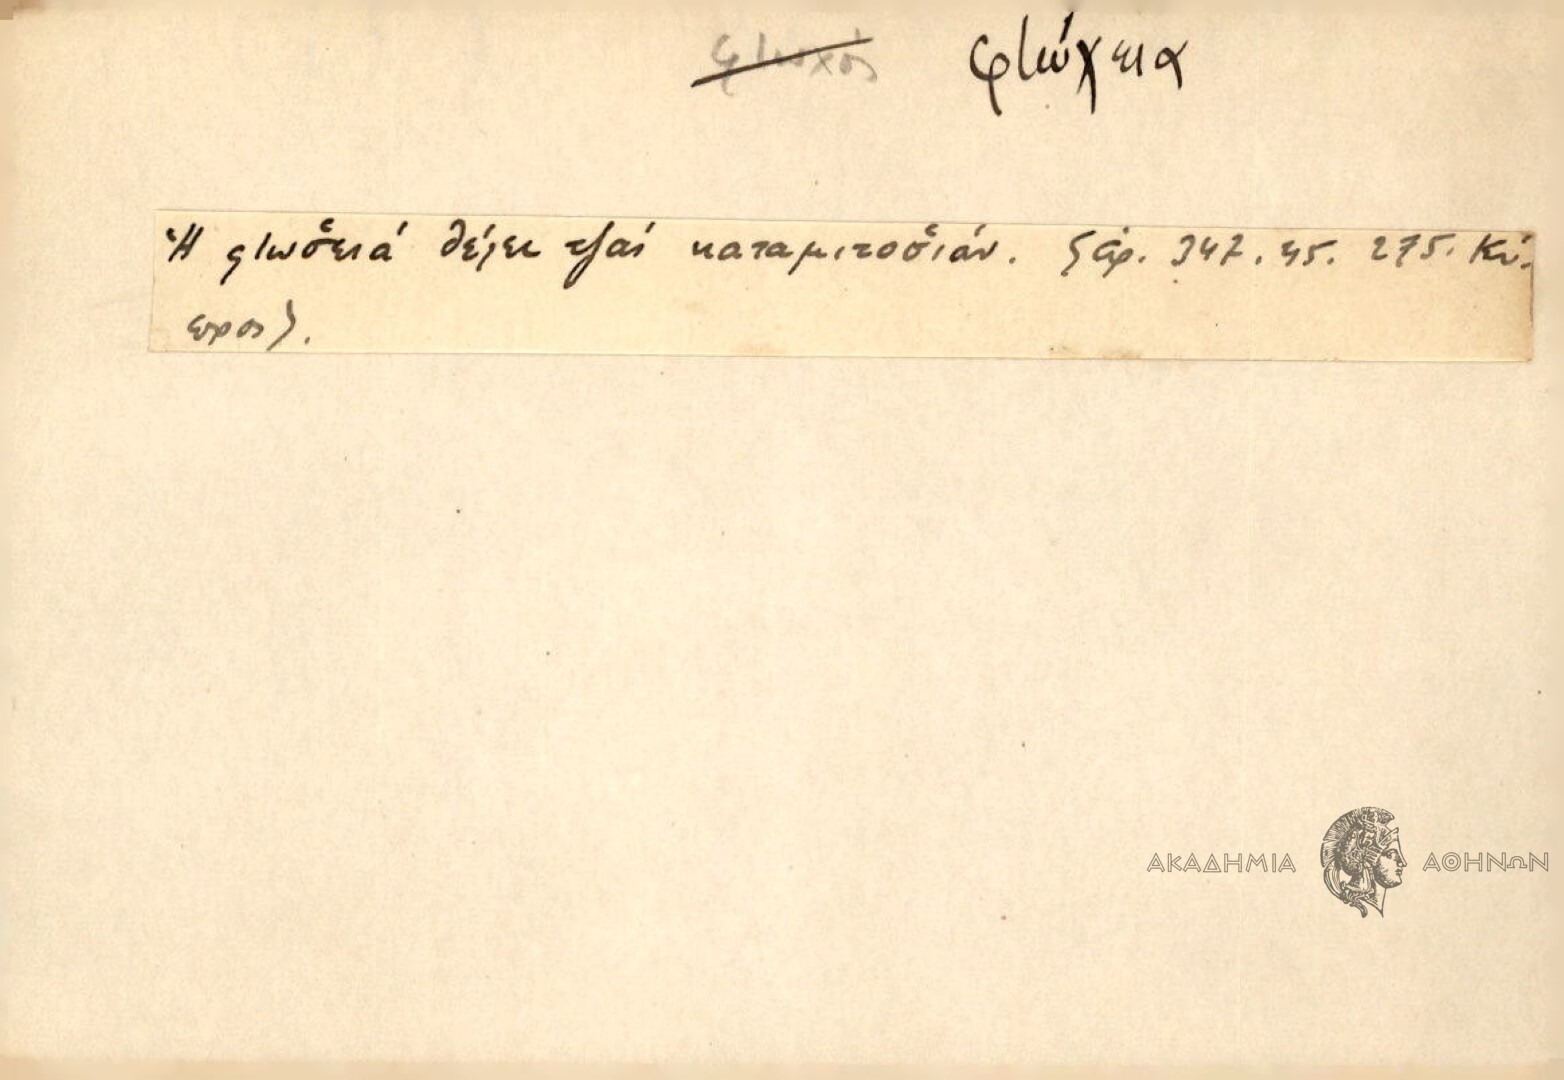 φτωχός φτώχεια
Ἡ φτωσ̌ειά θέλει τζαί καταμιτοσ̌ιάν. (ἀρ. 347. 45. 275. Κύ-
προς).
ΑΚΑΔΗΜΙΑ ΑΘΗΝΩΝ